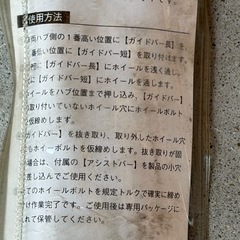 使用方法
両ハブ側の1番高い位置に【ガイドバー長】を
い位置に【ガイドバー短】を取り付けます。
ガイドバー長】にホイールを浅く通し、
ガイドバー短】にホイールを通します。
ホイールをハブ位置まで押し込み、【ガイドバー】
取り付いていないホイール穴にホイールボルト
仮締めします。
ガイドバー】を抜き取り、取り外したホイール穴
もホイールボルトを仮締めします。抜き取りが固
い場合は、付属の【アシストバー】を製品の小穴
差し込んでご使用ください。
てのホイールボルトを規定トルクで確実に締め
け作業完了です。ご使用後は専用パッケージに
れて保管してください。